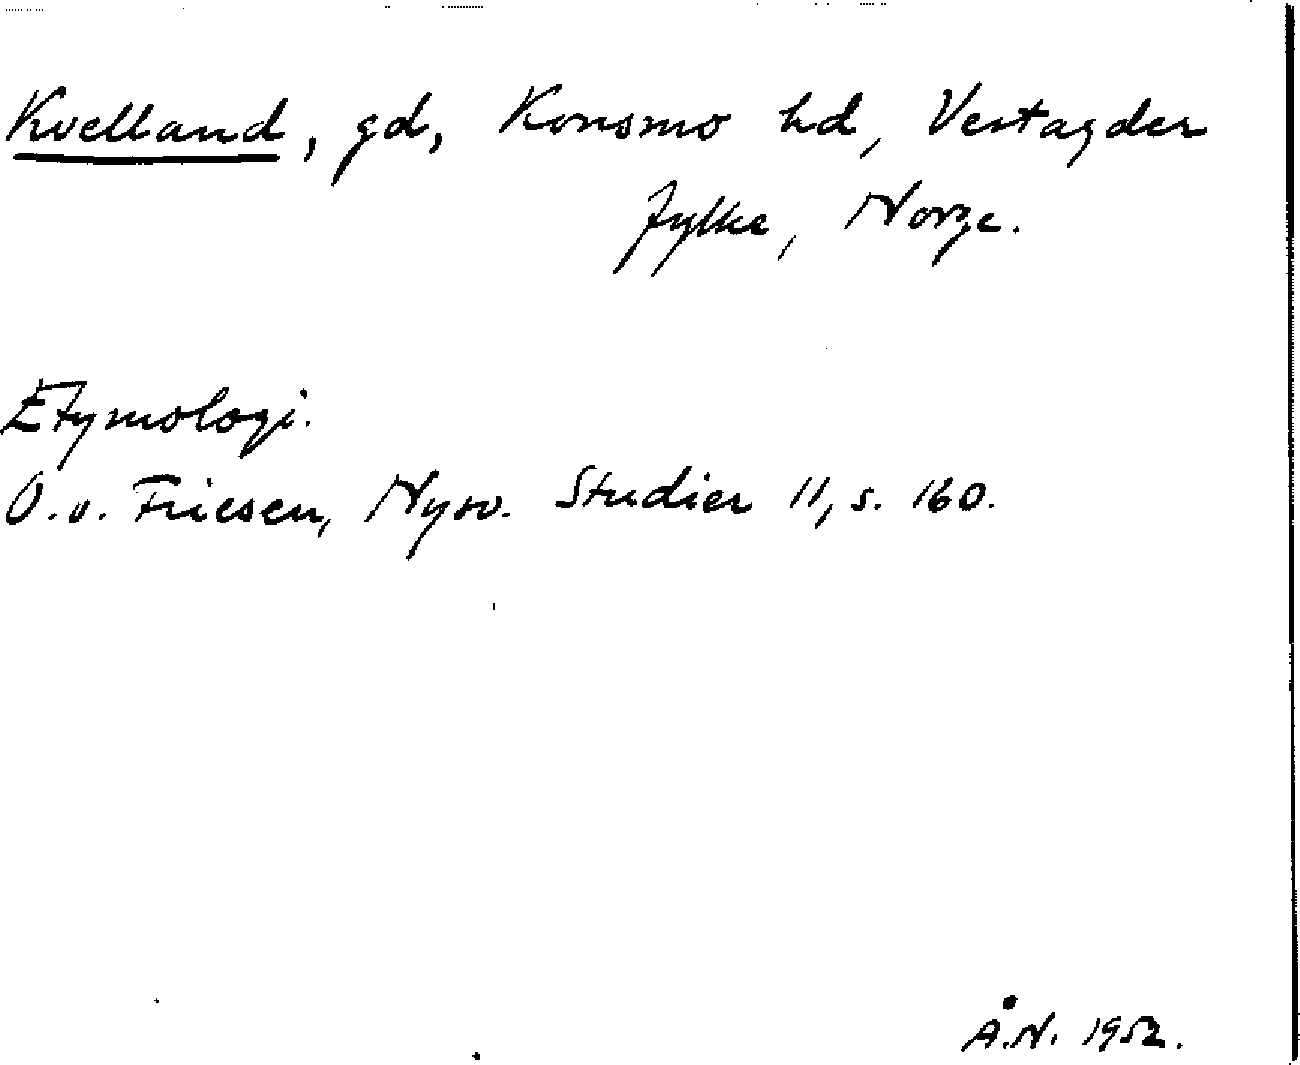 Kvelland, gd, Konsmo hd, Vestagder
fylke, Norge.
Etymologi.
O.v. Friesen, Nysv. Studier 11, s. 160.
Å.N. 1952.